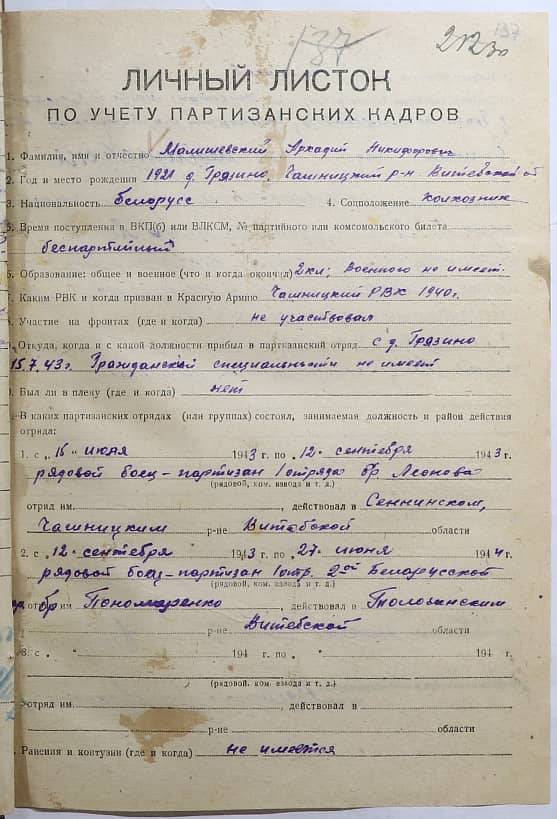 137
ЛИЧНЫЙ ЛИСТОК
ПО УЧЕТУ ПАРТИЗАНСКИХ КАДРОВ
1. Фамилия, имя и отчество Малишевский Аркадий Никифорович
2. Год и место рождения 1921 д. Грязино, Чашницкий р-н Витебской об
3. Национальность белорусс 4. Соцположение колхозник
5. Время поступления в ВКП(б) или ВЛКСМ, № партийного или комсомольского билета
беспартийный
6. Образование: общее и военное (что и когда окончил) 2кл; Военного не имеет
7. Каким РВК и когда призван в Красную Армию Чашницкий РВК 1940г.
Участие на фронтах (где и когда) не участвовал
Откуда, когда и с какой должности прибыл в партизанский отряд с д. Грязино
15.7.43г. Гражданской специальности не имеет
Был ли в плену (где и когда) нет
В каких партизанских отрядах (или группах) состоял, занимаемая должность и район действия
отряда:
1. с „15" июля 1943 г. по „12" сентября 1943 г.
рядовой боец-партизан 1 отряда бр Леонова
(рядовой, ком. взвода и т. д.)
отряд им. , действовал в Сеннинском,
Чашницким р-не Витебской области
2. с „12" сентября 1943 г. по „27" июня 1944 г.
рядовой боец-партизан 1 отр. 2ой Белорусской
(рядовой, ком. взвода и т. д.)
бр отр им Пономаренко , действовал в Толочанским
р-не Витебской области
3. с „ " 194 г. по „ " 194 г.
(рядовой, ком. взвода и т. д.)
отряд им. , действовал в
р-не области
Ранения и контузии (где и когда) не имеется